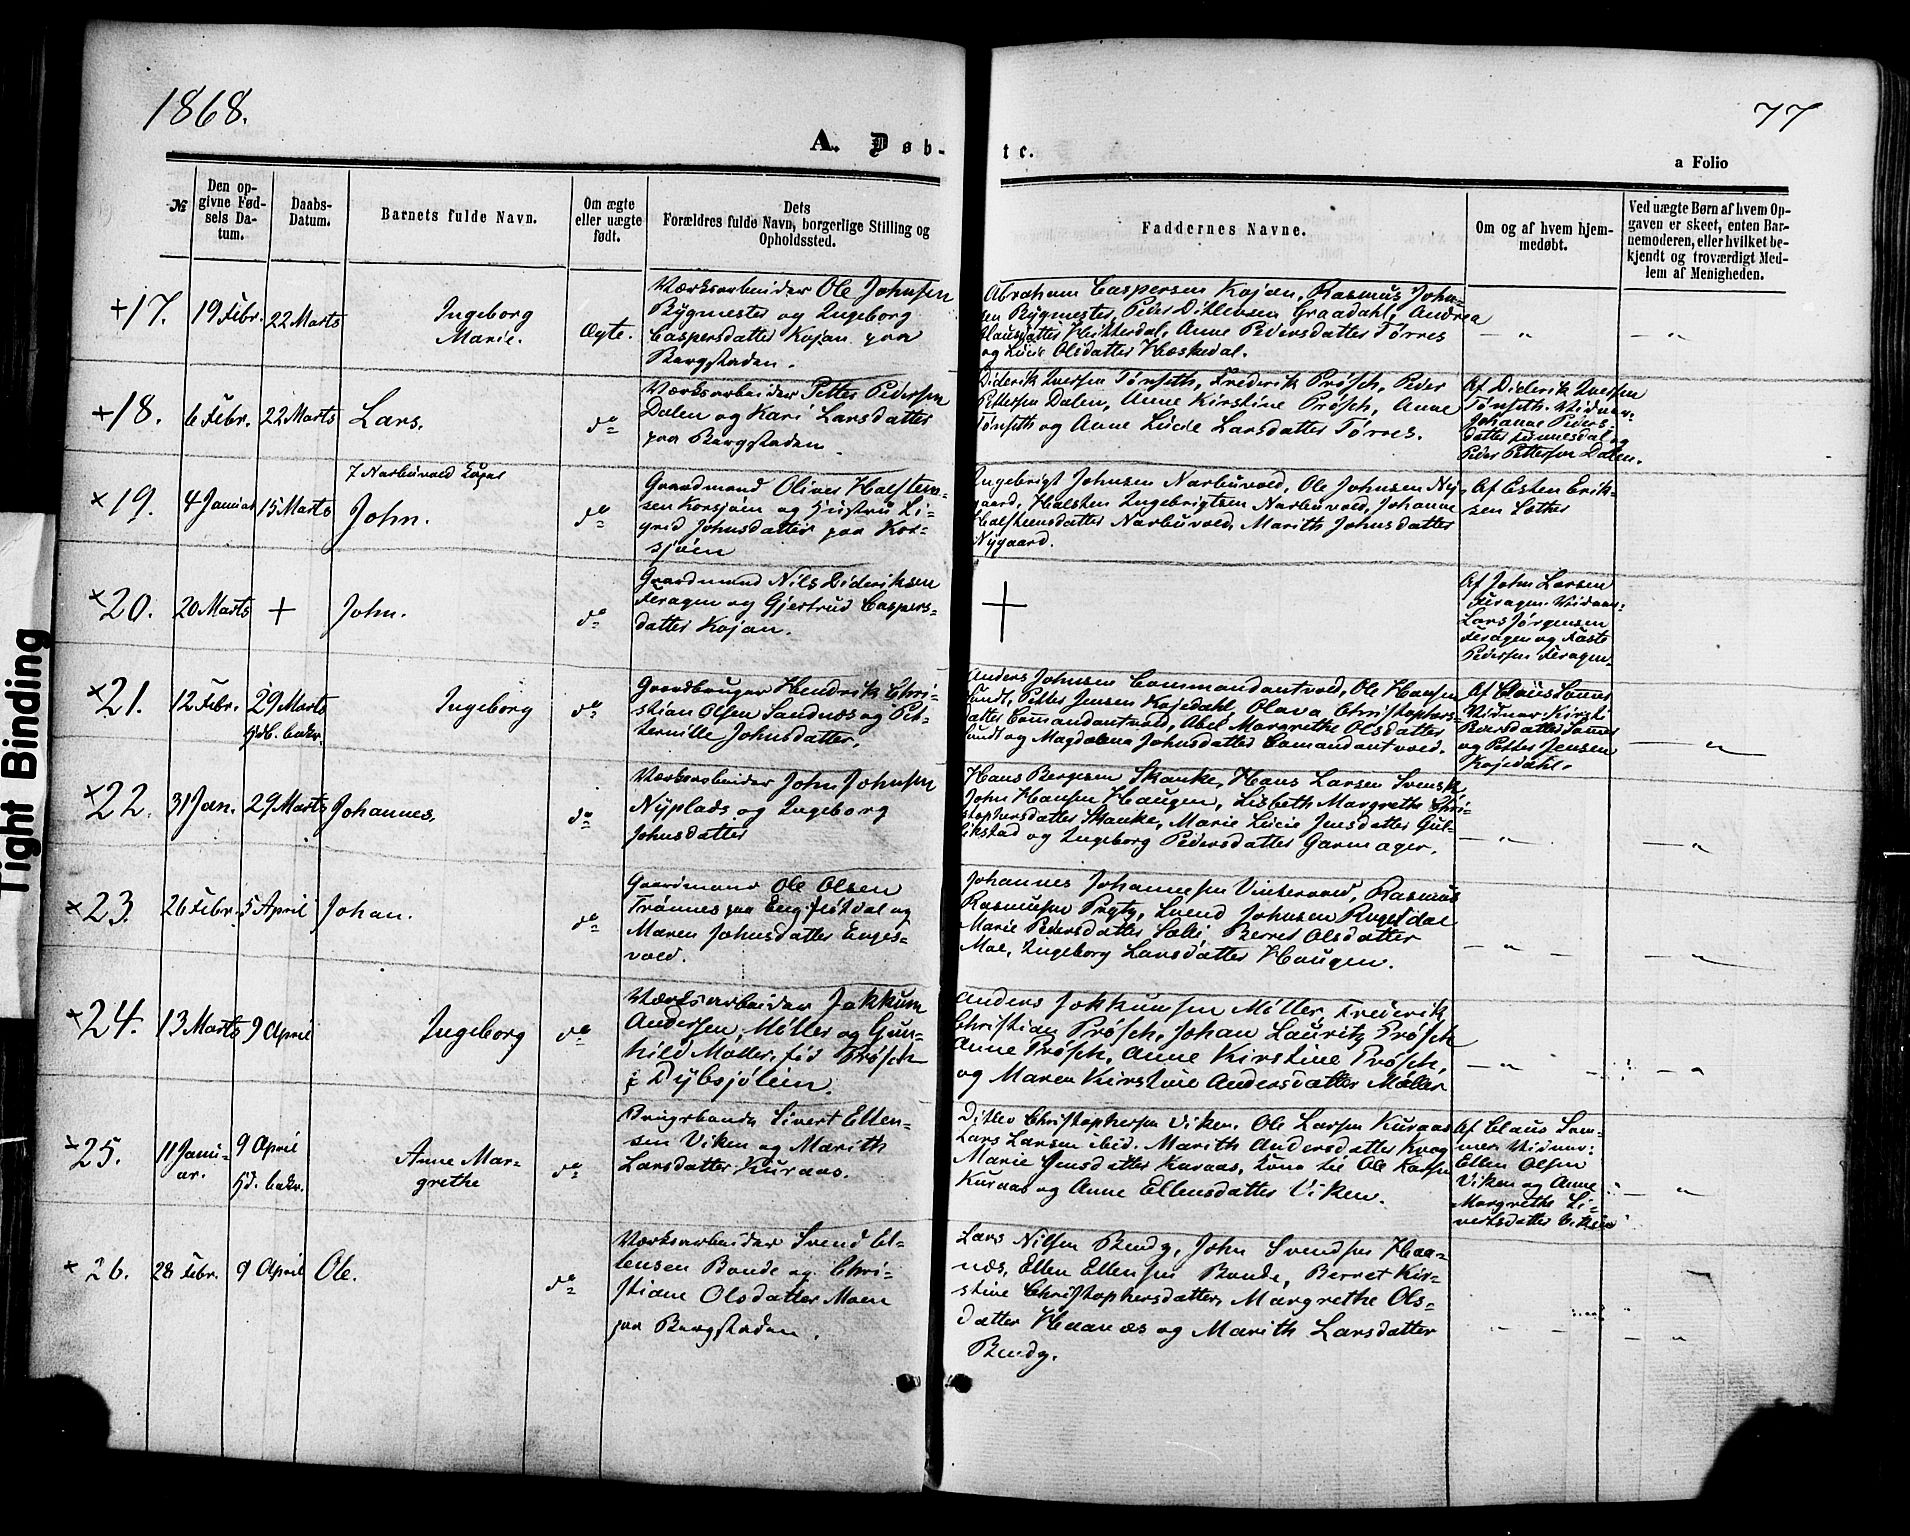 1868.
77
A. Døb-
te.
a Folio
№
Den op-
givne Fød-
sels Da-
tum.
Daabs-
Datum.
Barnets fulde Navn.
Om ægte
eller uægte
født.
Dets
Forældres fulde Navn, borgerlige Stilling og
Opholdssted.
Faddernes Navne.
Om og af hvem hjem-
medøbt.
Ved uægte Børn af hvem Op-
gaven er skeet, enten Bar-
nemoderen, eller hvilket be-
kjendt og troværdigt Med-
lem af Menigheden.
+17. 19 Febr. 22 Marts
Ingeborg
Marie.
Ægte.
Værksarbeider Ole Johnsen
Bygmester og Ingeborg
Caspersdatter Kojan paa
Bergstaden.
Abraham Caspersen Kojan, Rasmus John-
sen Bygmester, Peder Ditlevsen Graadahl, Andrea
Clausdatter Hitterdal, Anne Pedersdatter Tørres
og Lucie Olsdatter Hæskedal.
— " — "
+18. 6 Febr. 22 Marts Lars.
do
Værksarbeider Petter Pedersen
Dalen og Kari Larsdatter
paa Bergstaden.
Diderik Iversen Tønseth, Frederik Prøsch, Peder
Pettersen Dalen, Anne Kirstine Prøsch, Anne
Tønseth og Anne Lucie Larsdatter Tørres.
Af Diderik Iversen
Tønseth. Vidner:
Johanne Peders-
datter Finnesdal og
Peder Pettersen Dalen.
× 19. 4 Januar 15 Marts
i Narbuvold Capel
John.
do
Gaardmand Oliver Halsten-
sen Korsjøen og Hustru Si-
grid Johnsdatter paa Kor-
sjøen
Ingebrigt Johnsen Narbuvold, Ole Johnsen Ny-
gaard, Halsten Ingebrigtsen Narbuvold, Johanne
Halstensdatter Narbuvold, Marith Johnsdatter
Nygaard.
Af Esten Erik-
sen
× 20. 20 Marts + John.
do
Gaardmand Nils Dideriksen
Feragen og Gjertrud Caspers-
datter Kojan.
+
Af John Larsen
Feragen. Vidner:
Lars Jørgensen
Feragen og Faste
Pedersen Feragen
× 21. 12 Febr. 29 Marts
hjdb. bekr.
Ingeborg
do
Gaardbruger Hendrik Chri-
stian Olsen Sandnæs og Pet-
ternille Johnsdatter.
Anders Johnsen Commandantvold, Ole Hansen
Sundt, Petter Jensen Kojedahl, Olava Christophers-
datter Comandantvold, Abel Margrethe Olsdatter
Sundt og Magdalena Johnsdatter Comandantvold.
Af Claus Sommer
Vidner: Kirsti
Pedersdatter Sommer
og Petter Jensen
Kojedahl.
— "
× 22. 31 Jan. 29 Marts Johannes.
do
Værksarbeider John Johnsen
Nyplads og Ingeborg
Johnsdatter
Hans Bergesen Skanke, Hans Larsen Svensk,
John Hansen Haugen, Lisbeth Margrethe Chri-
stophersdatter Skanke, Marie Lucie Jensdatter Gul-
likstad og Ingeborg Pedersdatter Garmager.
— " — "
× 23. 26 Febr. 5 April Johan.
do
Gaardmand Ole Olsen
Trønnes paa Eng. fløtdal og
Maren Johnsdatter Enges-
vold.
Johannes Johannesen Vintervold, Rasmus
Rasmusen Prytz, Svend Johnsen Rugeldal
Marie Pedersdatter Sælie, Berret Olsdatter
Moe, Ingeborg Larsdatter Haugen.
— " — "
× 24. 13 Marts 9 April
Ingeborg
do
Værksarbeider Jakkum
Andersen Møller og Gun-
hild Møller, fød Prøsch
i Dybsjøleien.
Anders Jokkumsen Møller, Frederik
Christian Prøsch, Johan Lauritz Prøsch
Anne Prøsch, Anne Kirstine Prøsch,
og Maren Kirstine Andersdatter Møller
— " — "
× 25. 11 Janu-
ar.
9 April
hjd. bekr.
Anne Mar-
grethe
do
Brugsbonde Sivert Ellen-
sen Viken og Marith
Larsdatter Kuraas.
Ditlev Christophersen Viken, Ole Larsen Kuraas
Lars Larsen ibid. Marith Andersdatter Krog
Marie Jensdatter Kuraas, Kone til Ole Larsen
Kuraas og Anne Ellensdatter Viken.
Af Claus Som-
mer. Vidner:
Ellen Olsen
Viken og Anne
Margrethe Si-
vertsdatter Viken
— "
× 26. 28 Febr. 9 April Ole.
do
Værksarbeider Svend El-
lensen Bonde og Chri-
stiane Olsdatter Moen
paa Bergstaden.
Lars Nilsen Bendz, John Svendsen Haa-
næs, Ellen Ellensen Bonde, Berret Kir-
stine Christophersdatter, Margrethe Ols-
datter Haanæs og Marith Larsdatter
Bendz.
" — — "
Tight Binding